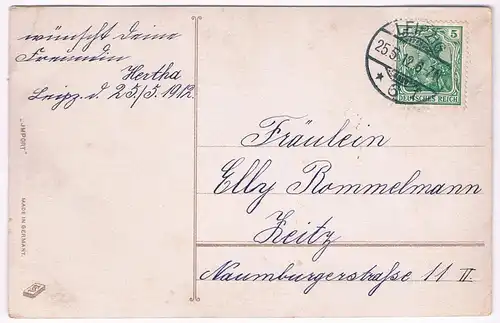 wünscht deine
Freundin
Hertha
Leipz. d. 25/5. 1912.
LEIPZIG
25.5.12.
5
DEUTSCHES REICH
Fräulein
Elly Rommelmann
Zeitz
Naumburgerstraße 11 II.
„IMPORT”
MADE IN GERMANY.